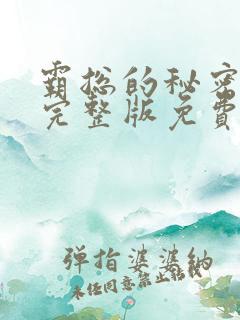 霸总的秘密
完整版免费
弹指婆婆納
未经同意禁止转载